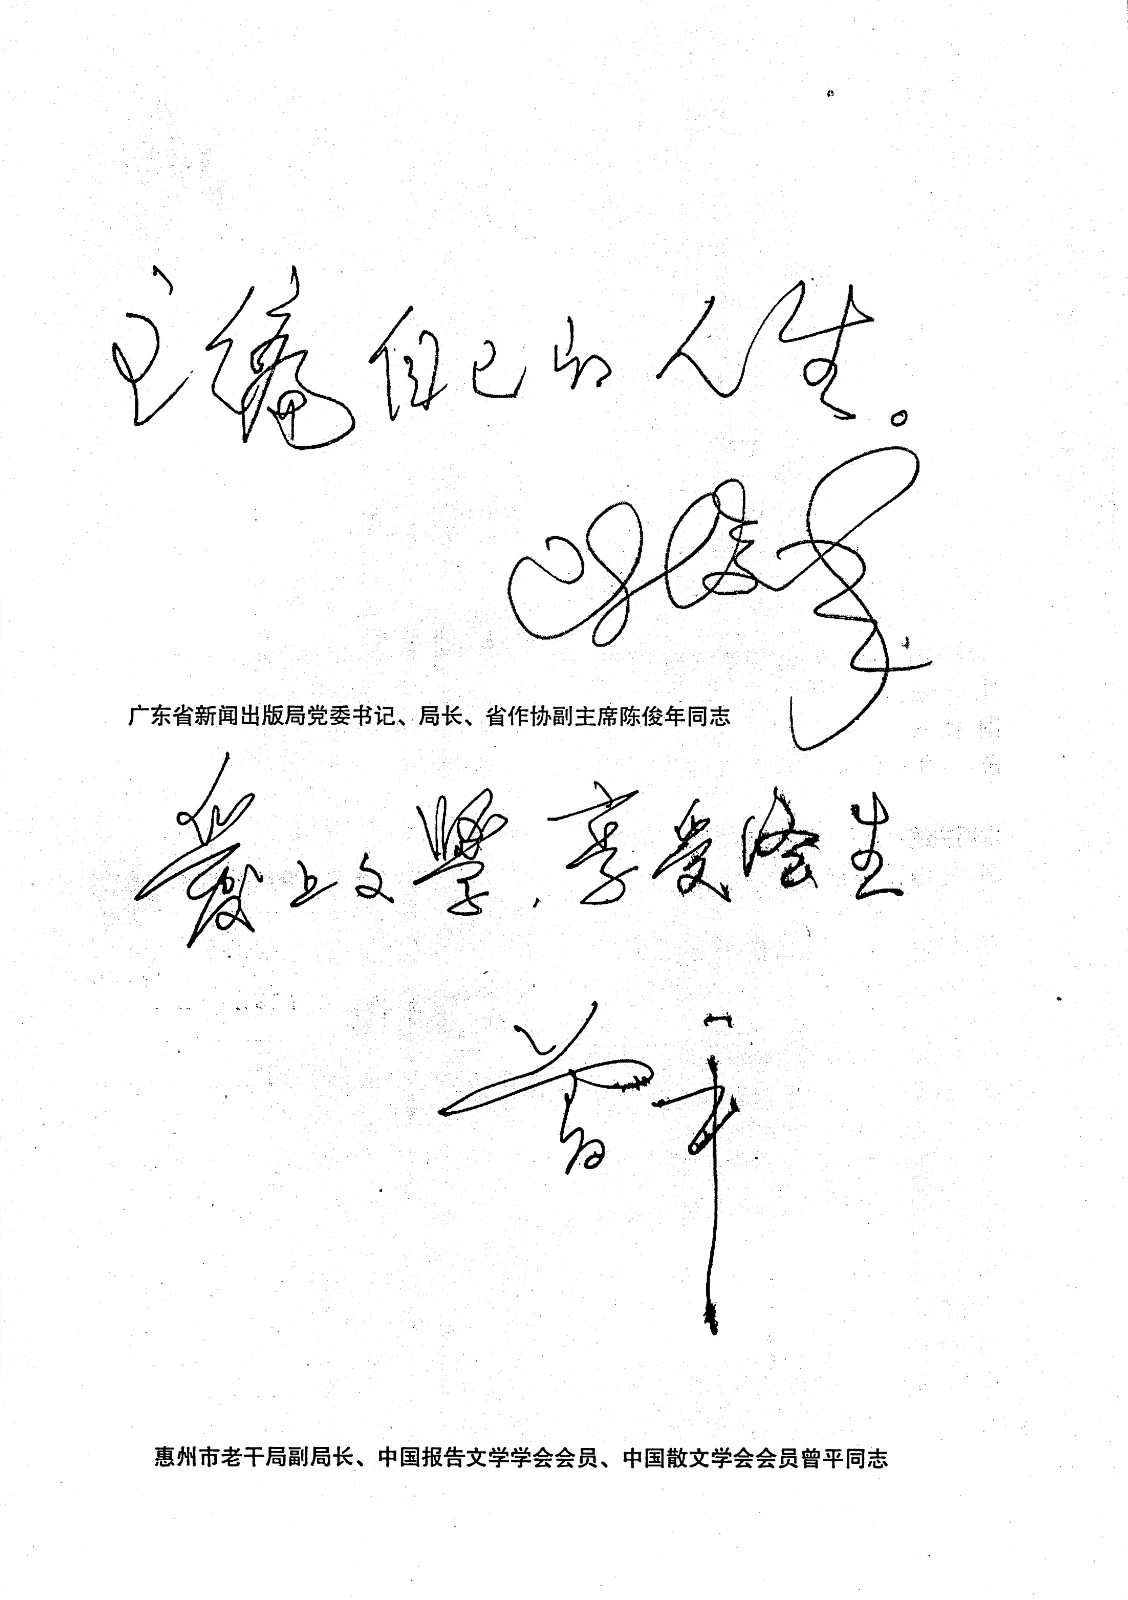 主编自己的人生。
陈俊年
广东省新闻出版局党委书记、局长、省作协副主席陈俊年同志
爱上文學，享受终生
曾平
惠州市老干局副局长、中国报告文学学会会员、中国散文学会会员曾平同志